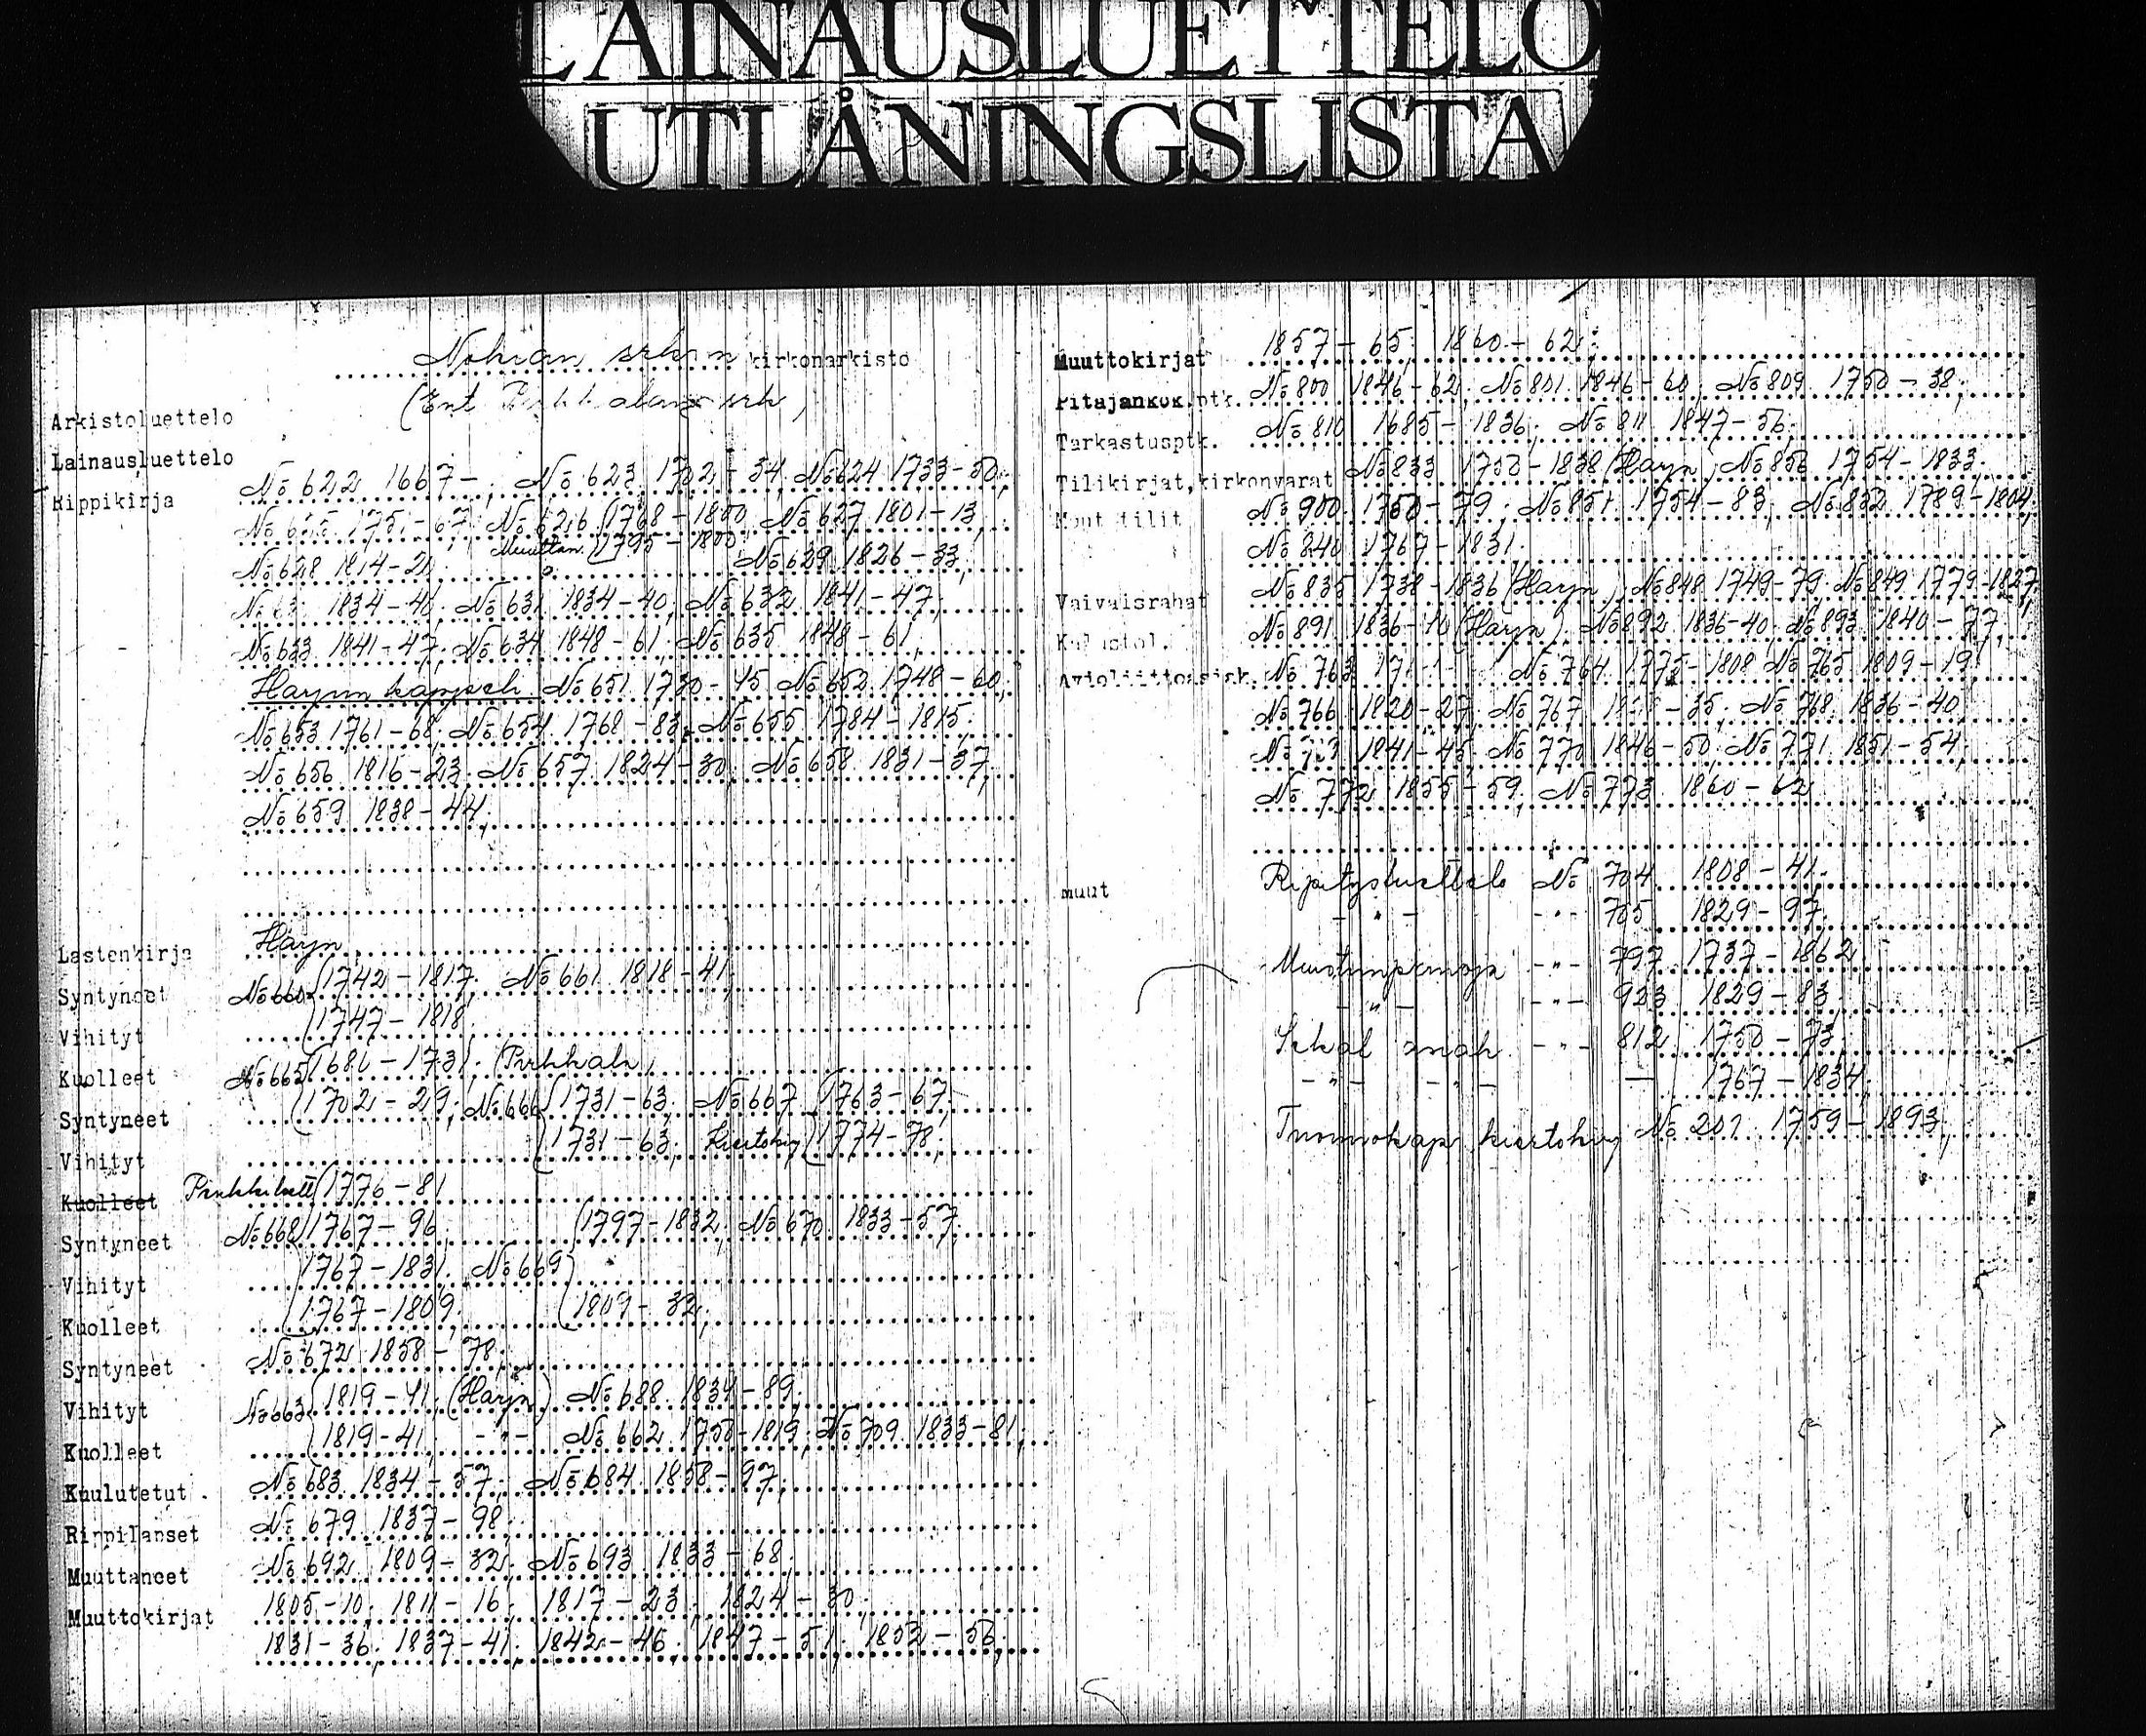 LAINAUSLUETTELO
UTLÅNINGSLISTA
Nokian srk:n kirkonarkisto
(Ent Pirkkalan srk)
Arkistoluettelo
Lainausluettelo
Rippikirja No 622 1667- ; No 623 1702-34, No 624 1733-50;
1751-67, No 626 (1768-1800, No 627 1801-13,
Muuttan. (1795-1800,
No 628 1814-21, No 629 1826-33,
1834-40, No 631 1834-40, No 632 1841-47,
No 633 1841-47, No 634 1848-61, No 635 1848-61,
Harjun kappeli No 651 1730-45 No 652 1748-60,
No 653 1761-68, No 654 1768-83, No 655 1784-1815,
No 656 1816-23, No 657 1824-30, No 658 1831-37,
No 659 1838-44,
Lastenkirja Harju
Syntyneet No 660 (1742-1817, No 661 1818-41,
Vihityt (1747-1818,
Kuolleet No 665 (1686-1731, (Pirkkala)
Syntyneet (1702-29, No 666 (1731-63, No 667 (1763-67,
Vihityt (1731-63, Kiertokirj (1774-78,
Kuolleet (1776-81
Syntyneet No 668 (1767-96 (1797-1832, No 670 1833-57,
Vihityt (1767-1831, No 669
Kuolleet (1767-1809, (1809-32,
Syntyneet No 672 1858-78,
Vihityt No 663 (1819-41, (Harju) No 688 1834-89,
Kuolleet (1819-41, -"- No 662 1750-1819, No 709 1833-81,
Kuulutetut No 683 1834-57, No 684 1858-97,
Rippilapset No 679 1837-98,
Muuttaneet No 692 1809-32, No 693 1833-68,
Muuttokirjat 1805-10, 1811-16, 1817-23, 1824-30,
1831-36, 1837-41, 1842-46, 1847-51, 1852-56,
Muuttokirjat 1857-65, 1860-62,
Pitäjänkok.ptk. No 800 1846-62, No 801 1846-60, No 809 1750-38,
Tarkastusptk. No 810 1685-1836, No 811 1847-56,
Tilikirjat, kirkonvarat No 833 1732-1838 (Harju), No 850 1754-1833,
Muut tilit No 900 1750-79, No 851 1754-83, No 852 1789-1804,
No 840 1767-1831.
Vaivaisrahat No 835 1738-1836 (Harju), No 848 1749-79, No 849 1779-1827,
No 891 1836-40 (Harju), No 892 1836-40, No 893 1840-77,
Avioliittoasiak. No 763 No 764 1775-1808 No 765 1809-19,
No 766 1820-27, No 767 -35, No 768 1836-40
1841-45, No 770 1846-50, No 771 1851-54,
No 772 1855-59, No 773 1860-62
muut Ripitysluettelo No 704 1808-41.
-"- -"- 705 1829-97.
Muistiinpanoja -"- 797 1737-1862,
-"- -"- 923 1829-83.
Sekal asiak -"- 812 1750-73,
-"- -"- — 1767-1834,
Tuomiokap kiertokirj No 201 1759-1893,